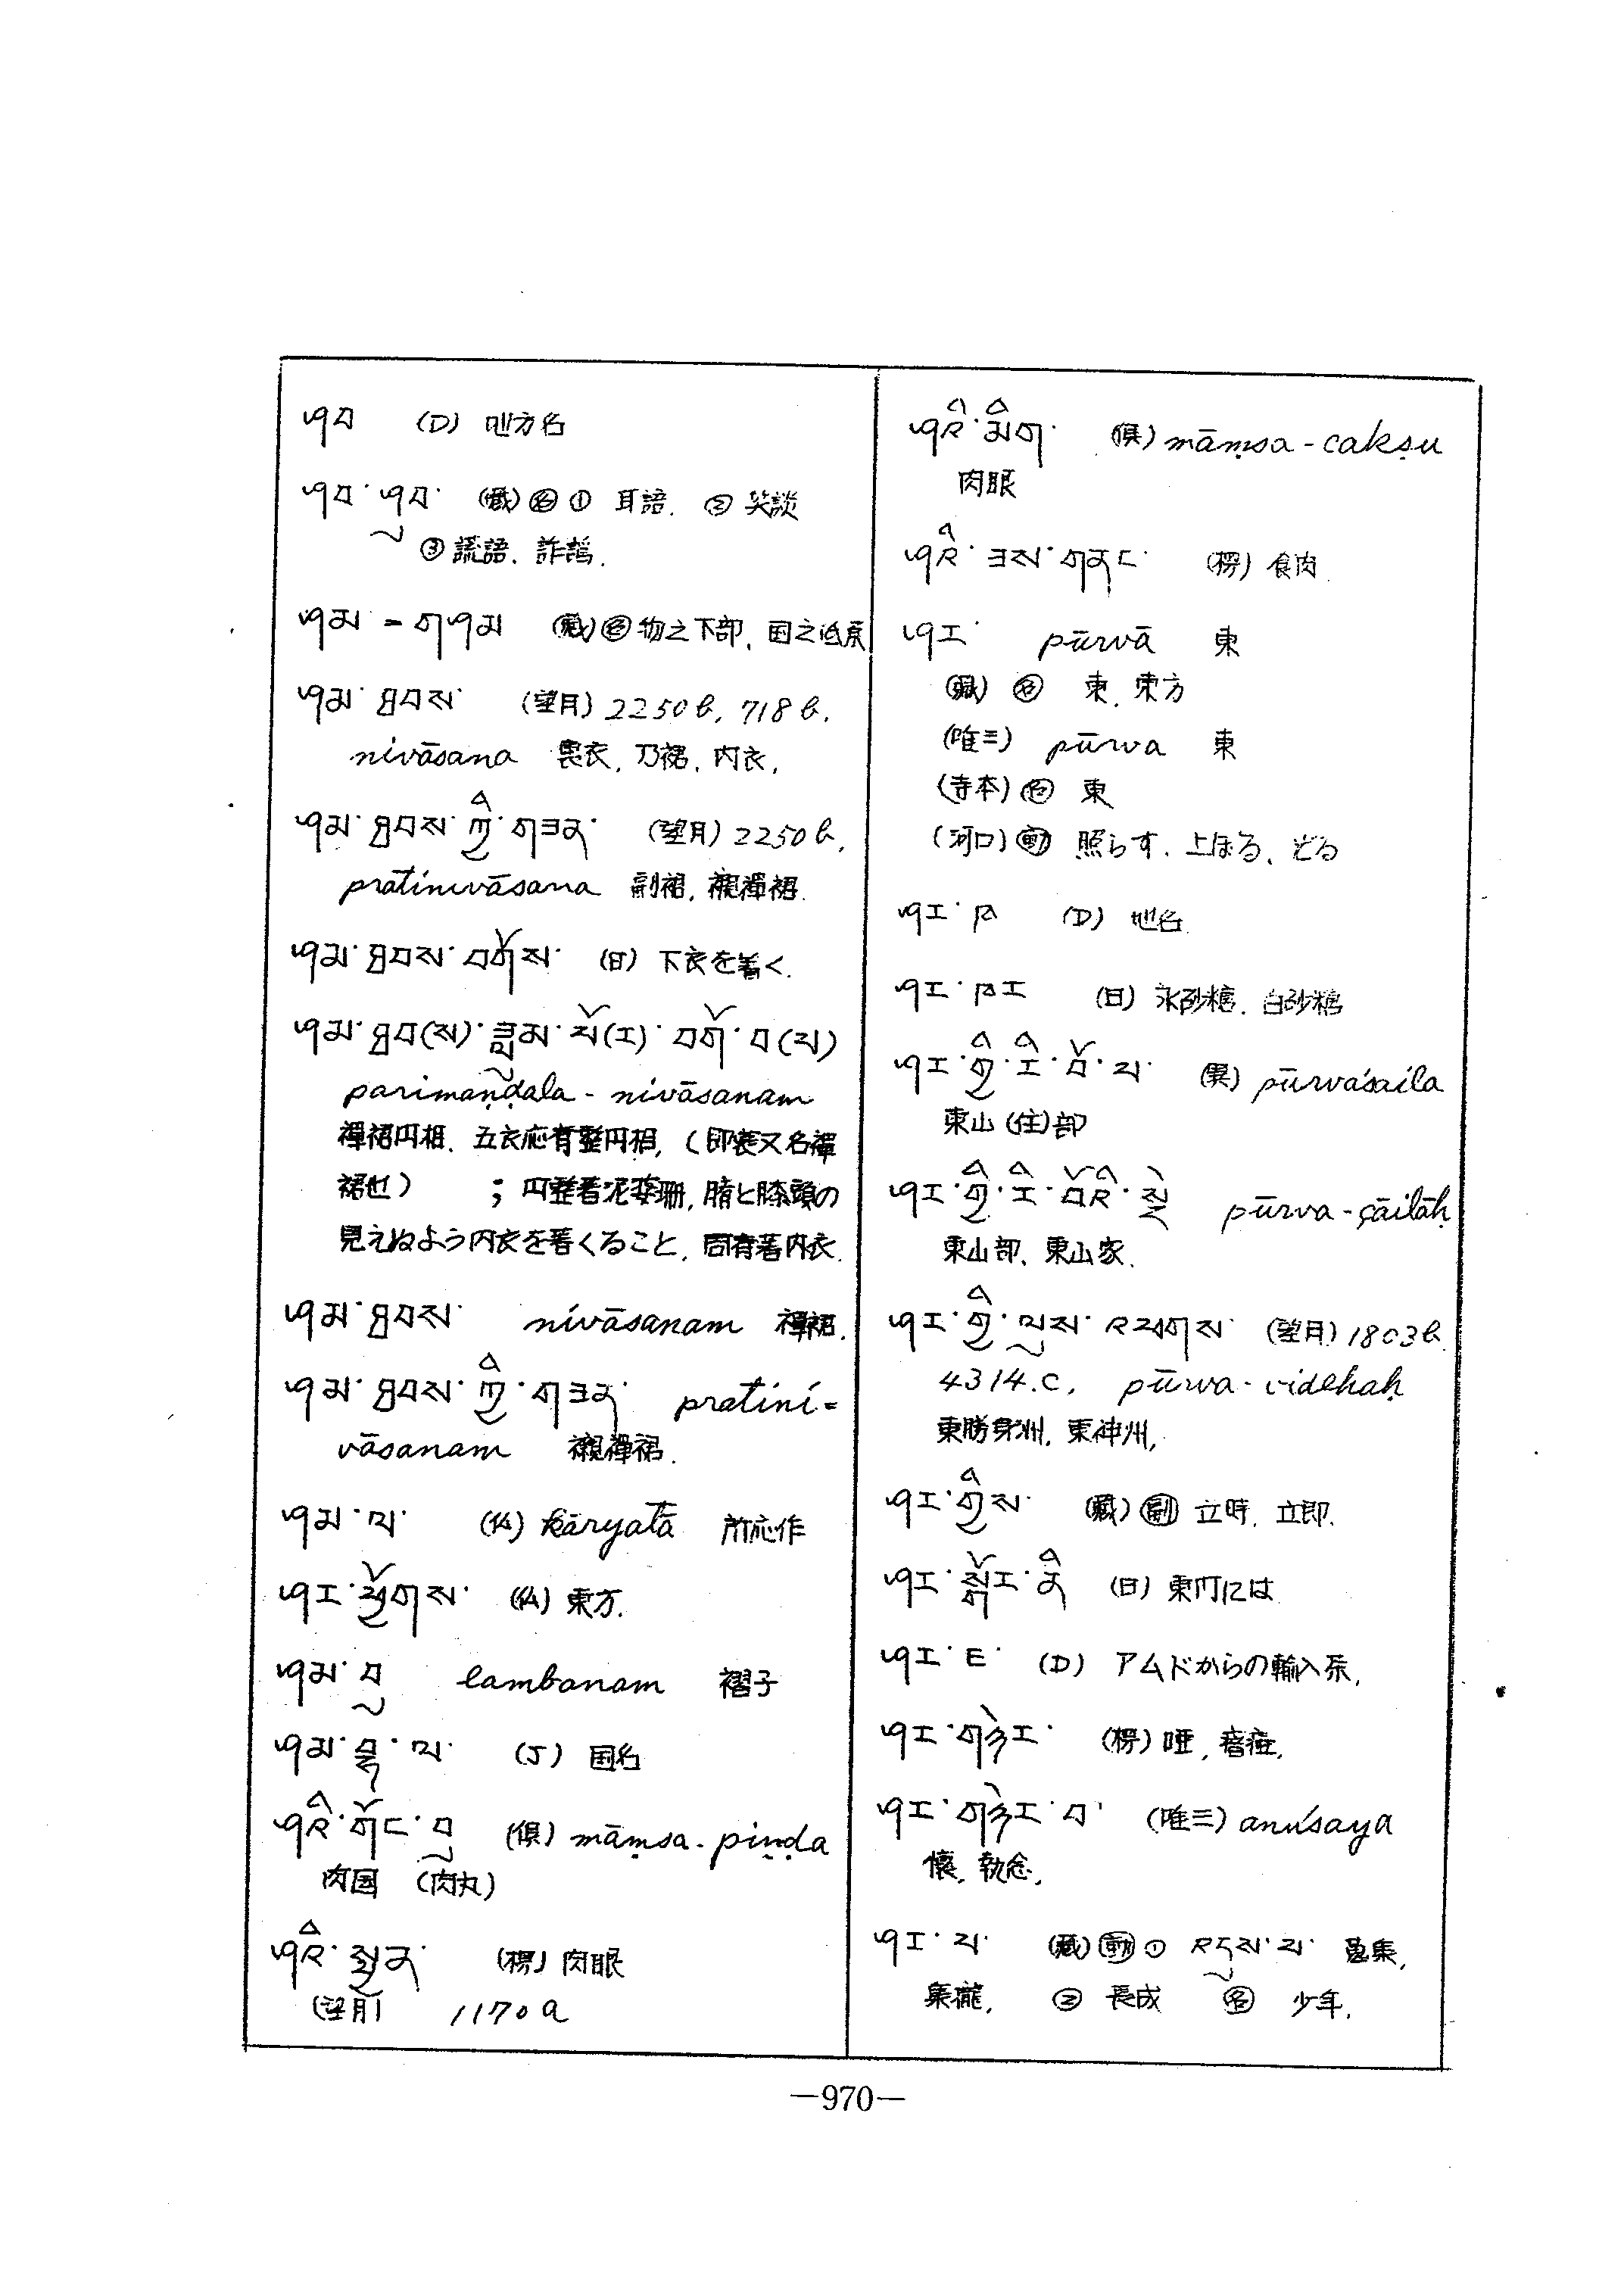 ཤབ (D) 地方名
ཤབ་ཤུབ་ (蔵)㊔① 耳語. ② 笑談
③ 謊語. 詐謟.
ཤམ = གཤམ (蔵)㊔物之下部, 国之低原
ཤམ་ཐབས་ (望月) 2250b, 718b.
nivāsana 裏衣, 乃裙, 内衣,
ཤམ་ཐབས་ཀྱི་གཟན་ (望月) 2250b,
pratinivāsana 副裙, 襯禅裙.
ཤམ་ཐབས་བགོས་ (日) 下衣を着く.
ཤམ་ཐབ(ས)་ཟླུམ་པོ(ར)་བགོ་བ(པ)
parimaṇḍala - nivāsanam
禅裙円相. 五衣応有整円相, (即裳又名禅
裙也) ; 円整着泥婆珊, 臍と膝頭の
見えぬよう内衣を着くること, 周斉著内衣.
ཤམ་ཐབས་ nivāsanam 禅裙.
ཤམ་ཐབས་ཀྱི་གཟན་ pratini=
vāsanam 襯禅裙.
ཤམ་ལ་ (仏) kāryatā 所応作
ཤར་ཕྱོགས་ (仏) 東方.
ཤམ་བུ lambanam 褶子
ཤམ་བྷ་ལ་ (J) 国名
ཤའི་གོང་བུ (倶) māṃsa - piṇḍa
肉団 (肉丸)
ཤའི་སྤྱན་ (楞) 肉眼
(望月) 1170a
ཤའི་མིག་ (倶) māṃsa - cakṣu
肉眼
ཤའི་ཟས་གཏང་ (楞) 食肉
ཤར་ pūrvā 東
(蔵) ㊔ 東, 東方
(唯三) pūrva 東
(寺本) ㊔ 東
(河口) 動 照らす. 上ぼる、
ཤར་ཁ (D) 地名
ཤར་ཁར (日) 氷砂糖. 白砂糖
ཤར་གྱི་རི་བོ་པ་ (異) pūrvaśaila
東山 (住) 部
ཤར་གྱི་རི་བོའི་སྡེ pūrva - çāilāḥ
東山部, 東山家.
ཤར་གྱི་ལུས་འཕགས་ (望月) 1803b.
4314.c, pūrva - videhaḥ
東勝身州, 東神州,
ཤར་གྱིས་ (蔵) 副 立時. 立即.
ཤར་སྒོར་ནི (日) 東門には
ཤར་ཇ་ (D) アムドからの輸入茶,
ཤར་གཉེར་ (楞) 瘂, 瘖瘂,
ཤར་གཉེར་བ་ (唯三) anuśaya
懐, 執念,
ཤར་པ་ (蔵) 動 ① འདུས་པ་ 蒐集,
集攏, ② 長成 ㊔ 少年.
—970—